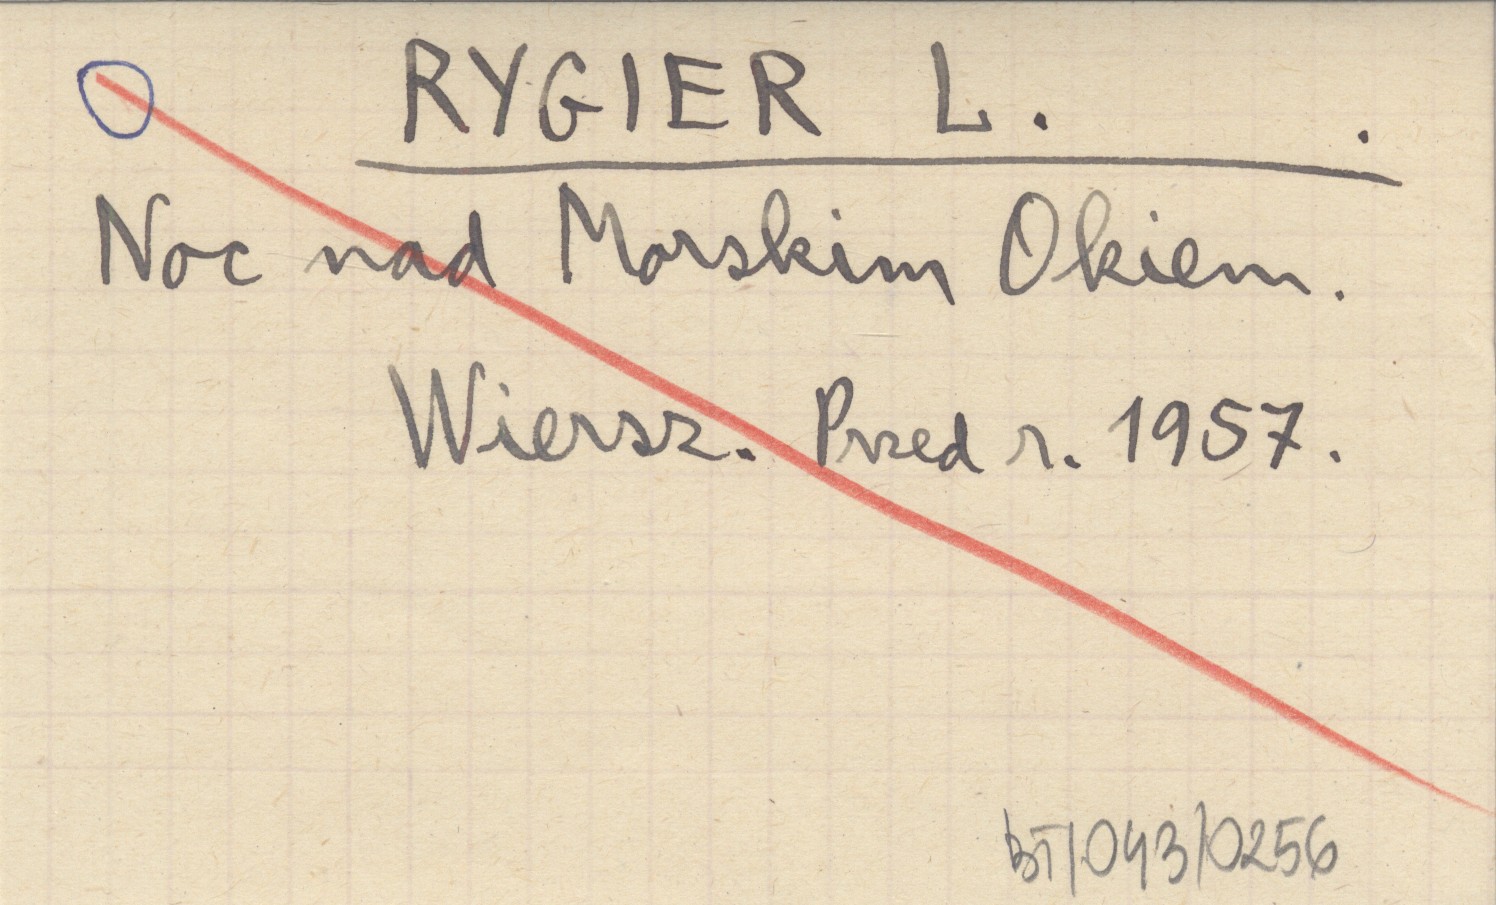 RYGIER L. .
Noc nad Morskim Okiem.
Wiersz. Przed r. 1957.
BT/043/0256